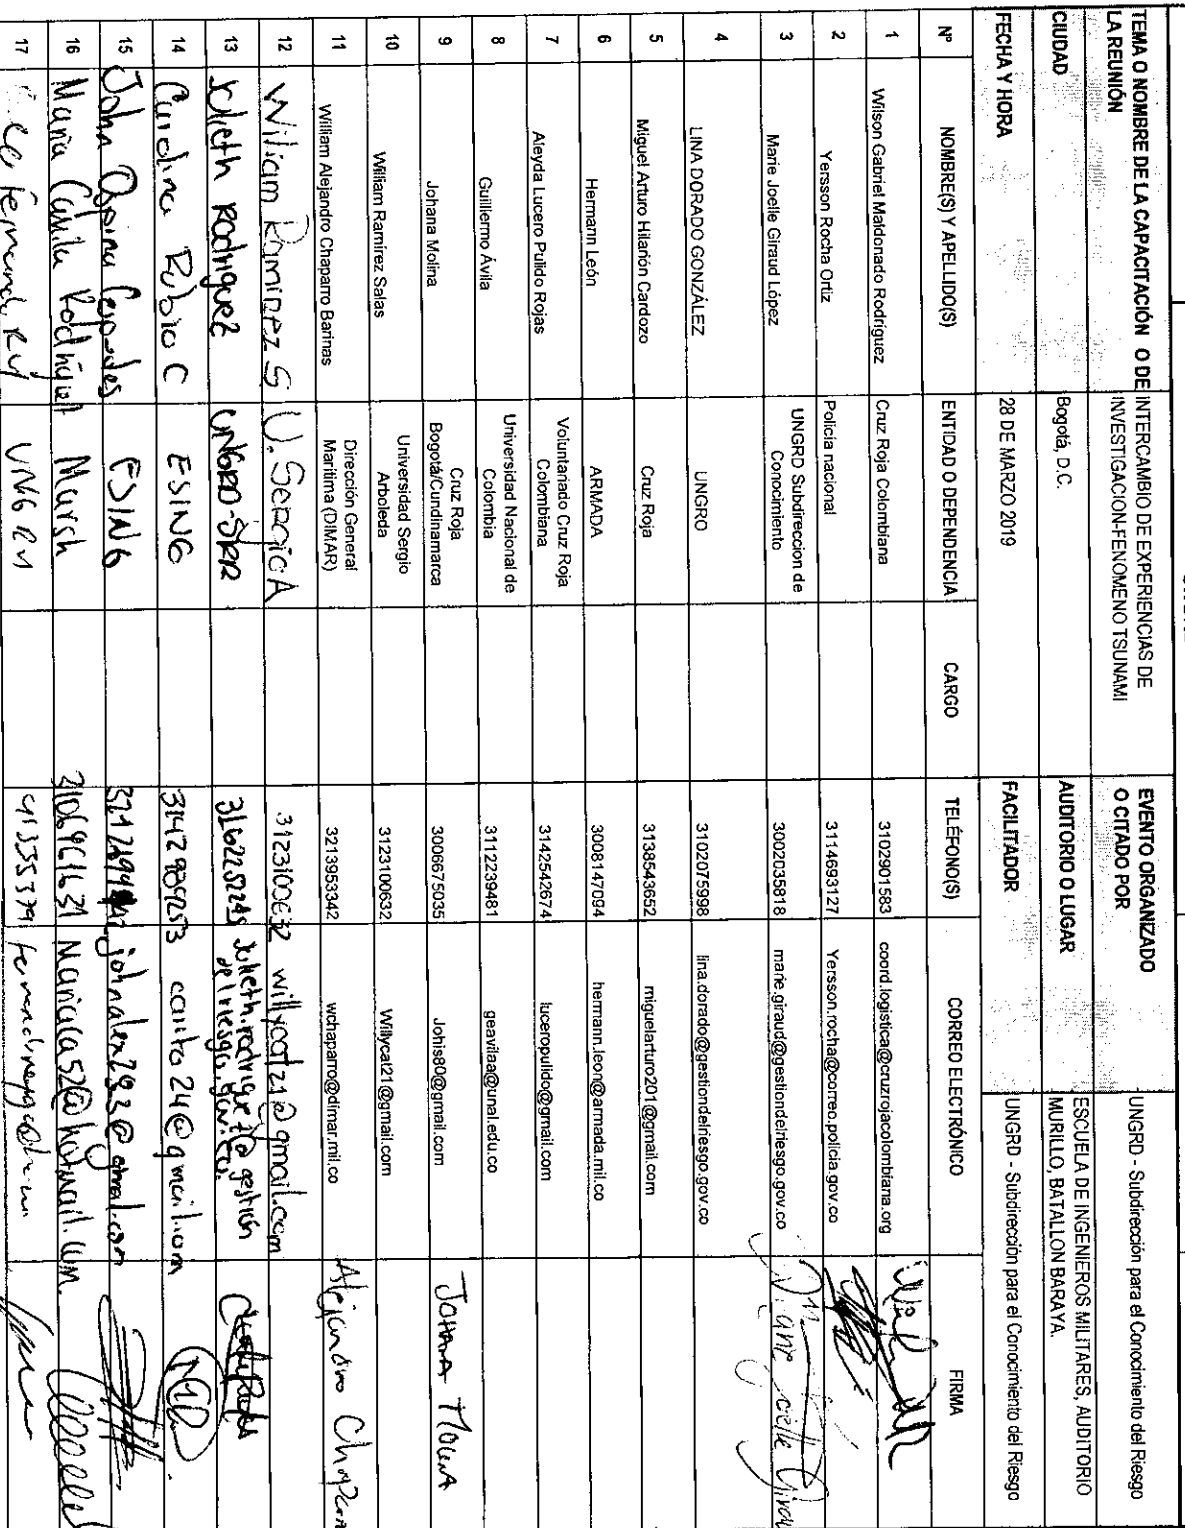 TEMA O NOMBRE DE LA CAPACITACIÓN O DE LA REUNIÓN
INTERCAMBIO DE EXPERIENCIAS DE INVESTIGACION-FENOMENO TSUNAMI
EVENTO ORGANIZADO O CITADO POR
UNGRD - Subdirección para el Conocimiento del Riesgo
CIUDAD
Bogotá, D.C.
AUDITORIO O LUGAR
ESCUELA DE INGENIEROS MILITARES, AUDITORIO MURILLO, BATALLON BARAYA.
FECHA Y HORA
28 DE MARZO 2019
FACILITADOR
UNGRD - Subdirección para el Conocimiento del Riesgo
Nº NOMBRE(S) Y APELLIDO(S) ENTIDAD O DEPENDENCIA CARGO TELÉFONO(S) CORREO ELECTRÓNICO FIRMA
1 Wilson Gabriel Maldonado Rodríguez Cruz Roja Colombiana 3102901583 coord.logistica@cruzrojacolombiana.org
2 Yersson Rocha Ortiz Policía nacional 3114693127 Yersson.rocha@correo.policia.gov.co
3 Marie Joelle Giraud López UNGRD Subdireccion de Conocimiento 3002035818 marie.giraud@gestiondelriesgo.gov.co
4 LINA DORADO GONZÁLEZ UNGRD 3102075998 lina.dorado@gestiondelriesgo.gov.co
5 Miguel Arturo Hilarión Cardozo Cruz Roja 3138543652 miguelarturo201@gmail.com
6 Hermann León ARMADA 3008147094 hermann.leon@armada.mil.co
7 Aleyda Lucero Pulido Rojas Voluntariado Cruz Roja Colombiana 3142542674 luceropulido@gmail.com
8 Guillermo Ávila Universidad Nacional de Colombia 3112239481 geavilaa@unal.edu.co
9 Johana Molina Cruz Roja Bogotá/Cundinamarca 3006675035 Johis80@gmail.com JOHANA MOLINA
10 William Ramírez Salas Universidad Sergio Arboleda 3123100632 Willycat21@gmail.com
11 William Alejandro Chaparro Barinas Dirección General Marítima (DIMAR) 3213953342 wchaparro@dimar.mil.co Alejandro Chaparro
12 William Ramirez S U. Sergio A 3123100632 willycat21@gmail.com
13 Julieth Rodriguez UNGRD-SRR julieth.rodriguez@gestiondelriesgo.gov.co
14 Carolina Rubio C ESING calito24@gmail.com
15 John Ospina Cespedes ESING
16 Maria Camila Rodriguez Marsh Maricat
17 Fernando UNGRD